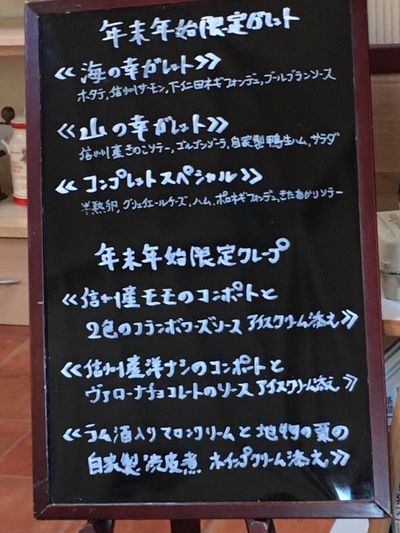 年末年始限定ガレット
≪海の幸ガレット≫
ホタテ,信州サーモン,下仁田ネギフォンデュ,ブールブランソース
≪山の幸ガレット≫
信州産きのこソテー,ゴルゴンゾーラ,自家製鴨生ハム,サラダ
≪コンプレットスペシャル≫
半熟卵,グリュイエールチーズ,ハム,ポロネギフォンデュ,きたあかりソテー
年末年始限定クレープ
≪信州産モモのコンポートと
2色のフランボワーズソース アイスクリーム添え≫
≪信州産洋ナシのコンポートと
ヴァローナチョコレートのソース アイスクリーム添え≫
≪ラム酒入りマロンクリームと地物の栗の
自家製渋皮煮 ホイップクリーム添え≫